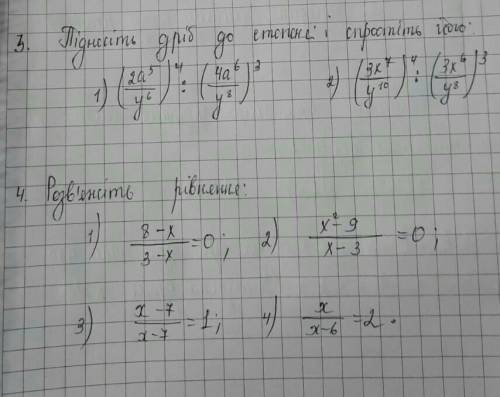 3. Піднесіть дріб до степеня і спростіть його:
1) (2a⁵/y⁶)⁴ : (4a⁶/y⁸)³ 2) (3x⁷/y¹⁰)⁴ : (3x⁶/y⁸)³
4. Розв'яжіть рівняння:
1) (8-x)/(3-x) = 0; 2) (x²-9)/(x-3) = 0;
3) (x-7)/(x-7) = 1; 4) x/(x-6) = 2.